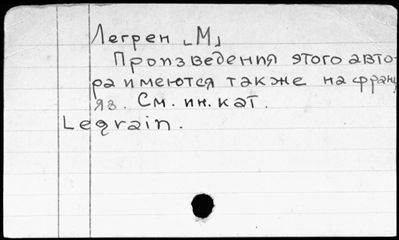 Легрен [М]
Произведения этого авто-
ра имеются также на франц.
яз. См. ин. кат.
Legrain.